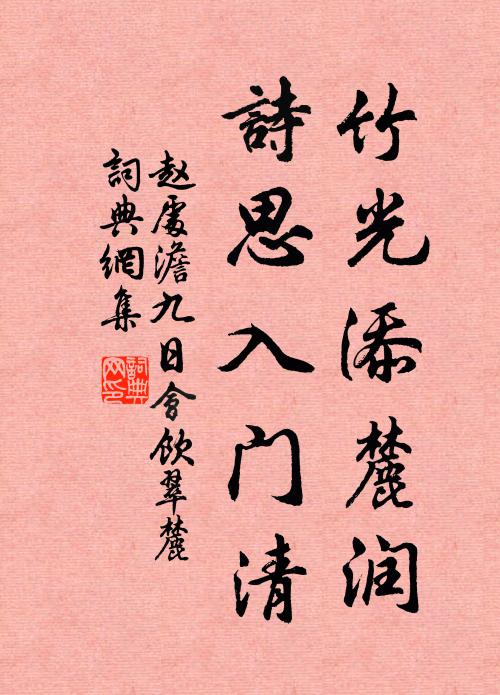 竹光添麓润
詩思入门清
赵處澹九日會飲翠麓
詞典網集
詞典
网印